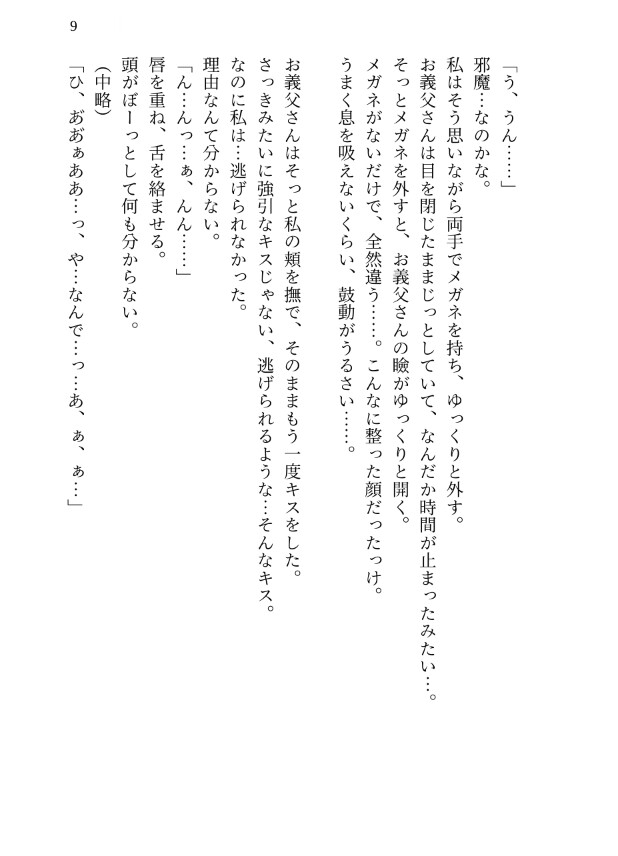 9
「う、うん……」
邪魔…なのかな。
私はそう思いながら両手でメガネを持ち、ゆっくりと外す。
お義父さんは目を閉じたままじっとしていて、なんだか時間が止まったみたい…。
そっとメガネを外すと、お義父さんの瞼がゆっくりと開く。
メガネがないだけで、全然違う……。こんなに整った顔だったっけ。
うまく息を吸えないくらい、鼓動がうるさい……。
お義父さんはそっと私の頬を撫で、そのままもう一度キスをした。
さっきみたいに強引なキスじゃない、逃げられるような…そんなキス。
なのに私は…逃げられなかった。
理由なんて分からない。
「ん…んっ…ぁ、んん……」
唇を重ね、舌を絡ませる。
頭がぼーっとして何も分からない。
（中略）
「ひ、あ゙あ゙ぁああ…っ、や…なんで…っ…あ、ぁ、ぁ…」